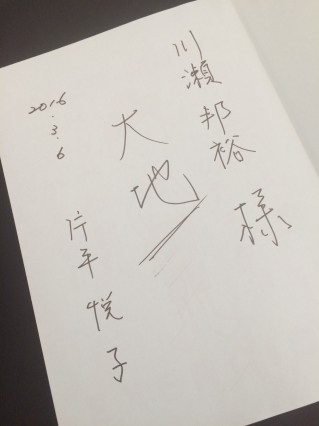 川瀬邦裕様
大地
2016.3.6
片平悦子